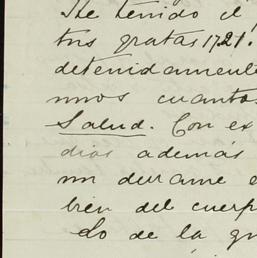 He tenido el
tus gratas 17 21.
detenidamente
mos cuanto
Salud. Con ex
dias además
un derame e
bien del cuerp
do de la gr